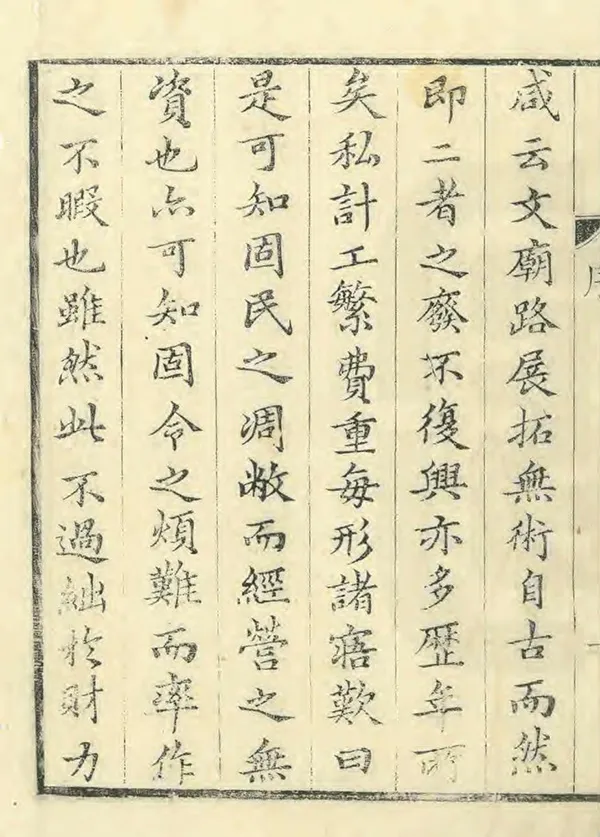 序
一
咸云文廟路展拓無術自古而然
即二者之廢不復興亦多歴年所
矣私計工繁費重每形諸寤歎曰
是可知固民之凋敝而經營之無
資也亦可知固令之煩難而率作
之不暇也雖然此不過絀於財力